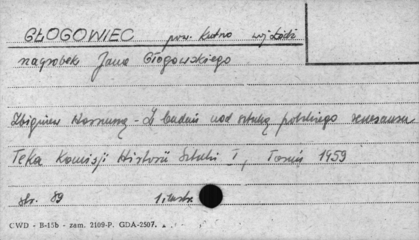 GŁOGOWIEC pow. Kutno woj Łódź
nagrobek Jana Głogowskiego
Zbigniew Hornung - Z badań nad sztuką polskiego renesansu
Teka Komisji Historii Sztuki I, Toruń 1959
str. 89 1 ilustr.
CWD - B-15b - zam. 2109-P. GDA-2507.